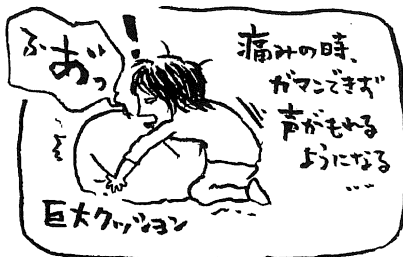 痛みの時、
ガマンできず
声がもれる
ようになる
…
ふ
あ゛っ
!
巨大クッション